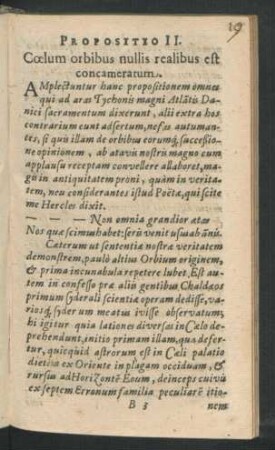 19
PROPOSITIO II.
Cœlum orbibus nullis realibus est
concameratum.
AMplectuntur hanc propositionem omnes
qui ad aras Tychonis magni Atlātis Da-
nici sacramentum dixerunt, alii extra hos
contrarium eunt adsertum, nefas autuman-
tes, si quis illam de orbibus eorumq́; successione
opinionem, ab atavis nostris magno cum
applausu receptam convellere allaboret, ma-
gis in antiquitatem proni, quàm in verita-
tem, neu considerantes istud Poëtæ, qui scite
me Hercles dixit.
— — — Non omnia grandior ætas
Nos quæ scimus habet: seris venit usus ab ānis.
Cæterum ut sententiæ nostræ veritatem
demonstrem, paulò altius Orbium originem,
& prima incunabula repetere lubet. Est au-
tem in confesso præ aliis gentibus Chaldæos
primum syderali scientiæ operam dedisse, va-
riosq́; syderum meatus ivisse observatum,
hi igitur quia lationes diversas in Cælo de-
prehendunt, initio primam illam, qua defer-
tur, quicquid astrorum est in Cæli palatio
dietim ex Oriente in plagam occiduam, &
rursus ad Horizontē Eoum, deinceps cuivis
ex septem Erronum familia peculiarē itio-
B 3 nem